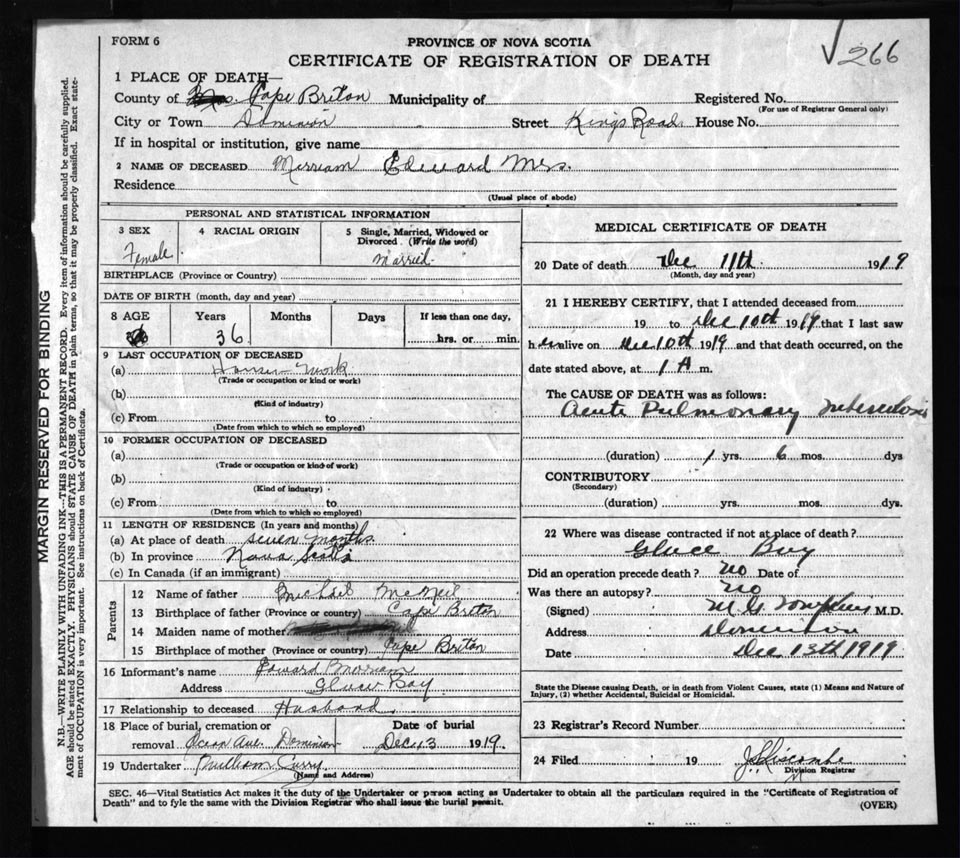 FORM 6
PROVINCE OF NOVA SCOTIA
CERTIFICATE OF REGISTRATION OF DEATH
√266
1 PLACE OF DEATH—
County of Cape Briton Municipality of Registered No.
(For use of Registrar General only)
City or Town Dominion Street Kings Road House No.
If in hospital or institution, give name
2 NAME OF DECEASED Merriam Edward Mrs.
Residence
(Usual place of abode)
PERSONAL AND STATISTICAL INFORMATION
3 SEX 4 RACIAL ORIGIN 5 Single, Married, Widowed or Divorced. (Write the word)
Female Married
BIRTHPLACE (Province or Country)
DATE OF BIRTH (month, day and year)
8 AGE Years Months Days If less than one day,
36 hrs. or min.
9 LAST OCCUPATION OF DECEASED
(a) House work
(Trade or occupation or kind or work)
(b)
(Kind of industry)
(c) From to
(Date from which to which so employed)
10 FORMER OCCUPATION OF DECEASED
(a)
(Trade or occupation or kind of work)
(b)
(Kind of industry)
(c) From to
(Date from which to which so employed)
11 LENGTH OF RESIDENCE (In years and months)
(a) At place of death seven months
(b) In province Nova Scotia
(c) In Canada (if an immigrant)
Parents
12 Name of father Michael McNeil
13 Birthplace of father (Province or country) Cape Breton
14 Maiden name of mother
15 Birthplace of mother (Province or country) Cape Briton
16 Informant's name Edward Merriam
Address Glace Bay
17 Relationship to deceased Husband
18 Place of burial, cremation or removal Ocean Ave. Dominion
Date of burial Dec 13 1919.
19 Undertaker William Curry
(Name and Address)
MEDICAL CERTIFICATE OF DEATH
20 Date of death Dec 11th 1919
(Month, day and year)
21 I HEREBY CERTIFY, that I attended deceased from
19 to Dec 10th 1919 that I last saw
h er alive on Dec 10th 1919 and that death occurred, on the
date stated above, at 1 A m.
The CAUSE OF DEATH was as follows:
Acute Pulmonary Tuberculosis
(duration) 1 yrs. 6 mos. dys
CONTRIBUTORY
(Secondary)
(duration) yrs. mos. dys.
22 Where was disease contracted if not at place of death?
Glace Bay
Did an operation precede death? no Date of
Was there an autopsy? no
(Signed) M G Tompkins M.D.
Address Dominion
Date Dec 13th 1919
State the Disease causing Death, or in death from Violent Causes, state (1) Means and Nature of
Injury, (2) whether Accidental, Suicidal or Homicidal.
23 Registrar's Record Number
24 Filed 19
Division Registrar
SEC. 46—Vital Statistics Act makes it the duty of the Undertaker or person acting as Undertaker to obtain all the particulars required in the "Certificate of Registration of
Death" and to fyle the same with the Division Registrar who shall issue the burial permit.
(OVER)
MARGIN RESERVED FOR BINDING
N.B.—WRITE PLAINLY WITH UNFADING INK—THIS IS A PERMANENT RECORD. Every item of information should be carefully supplied.
AGE should be stated EXACTLY. PHYSICIANS should STATE CAUSE OF DEATH in plain terms, so that it may be properly classified. Exact state-
ment of OCCUPATION is very important. See instructions on back of Certificate.